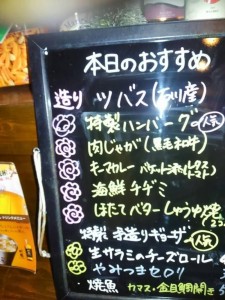 本日のおすすめ
造り ツバス(石川産)
特製ハンバーグ 人気
肉じゃが(黒毛和牛)
キーマカレー バケット添え レタス
トマト
海鮮チヂミ
ほたてバターしょうゆ焼
特製 手造りギョーザ 人気
生サラミのチーズロール
やみつきセロリ
焼魚 カマス・金目鯛開き